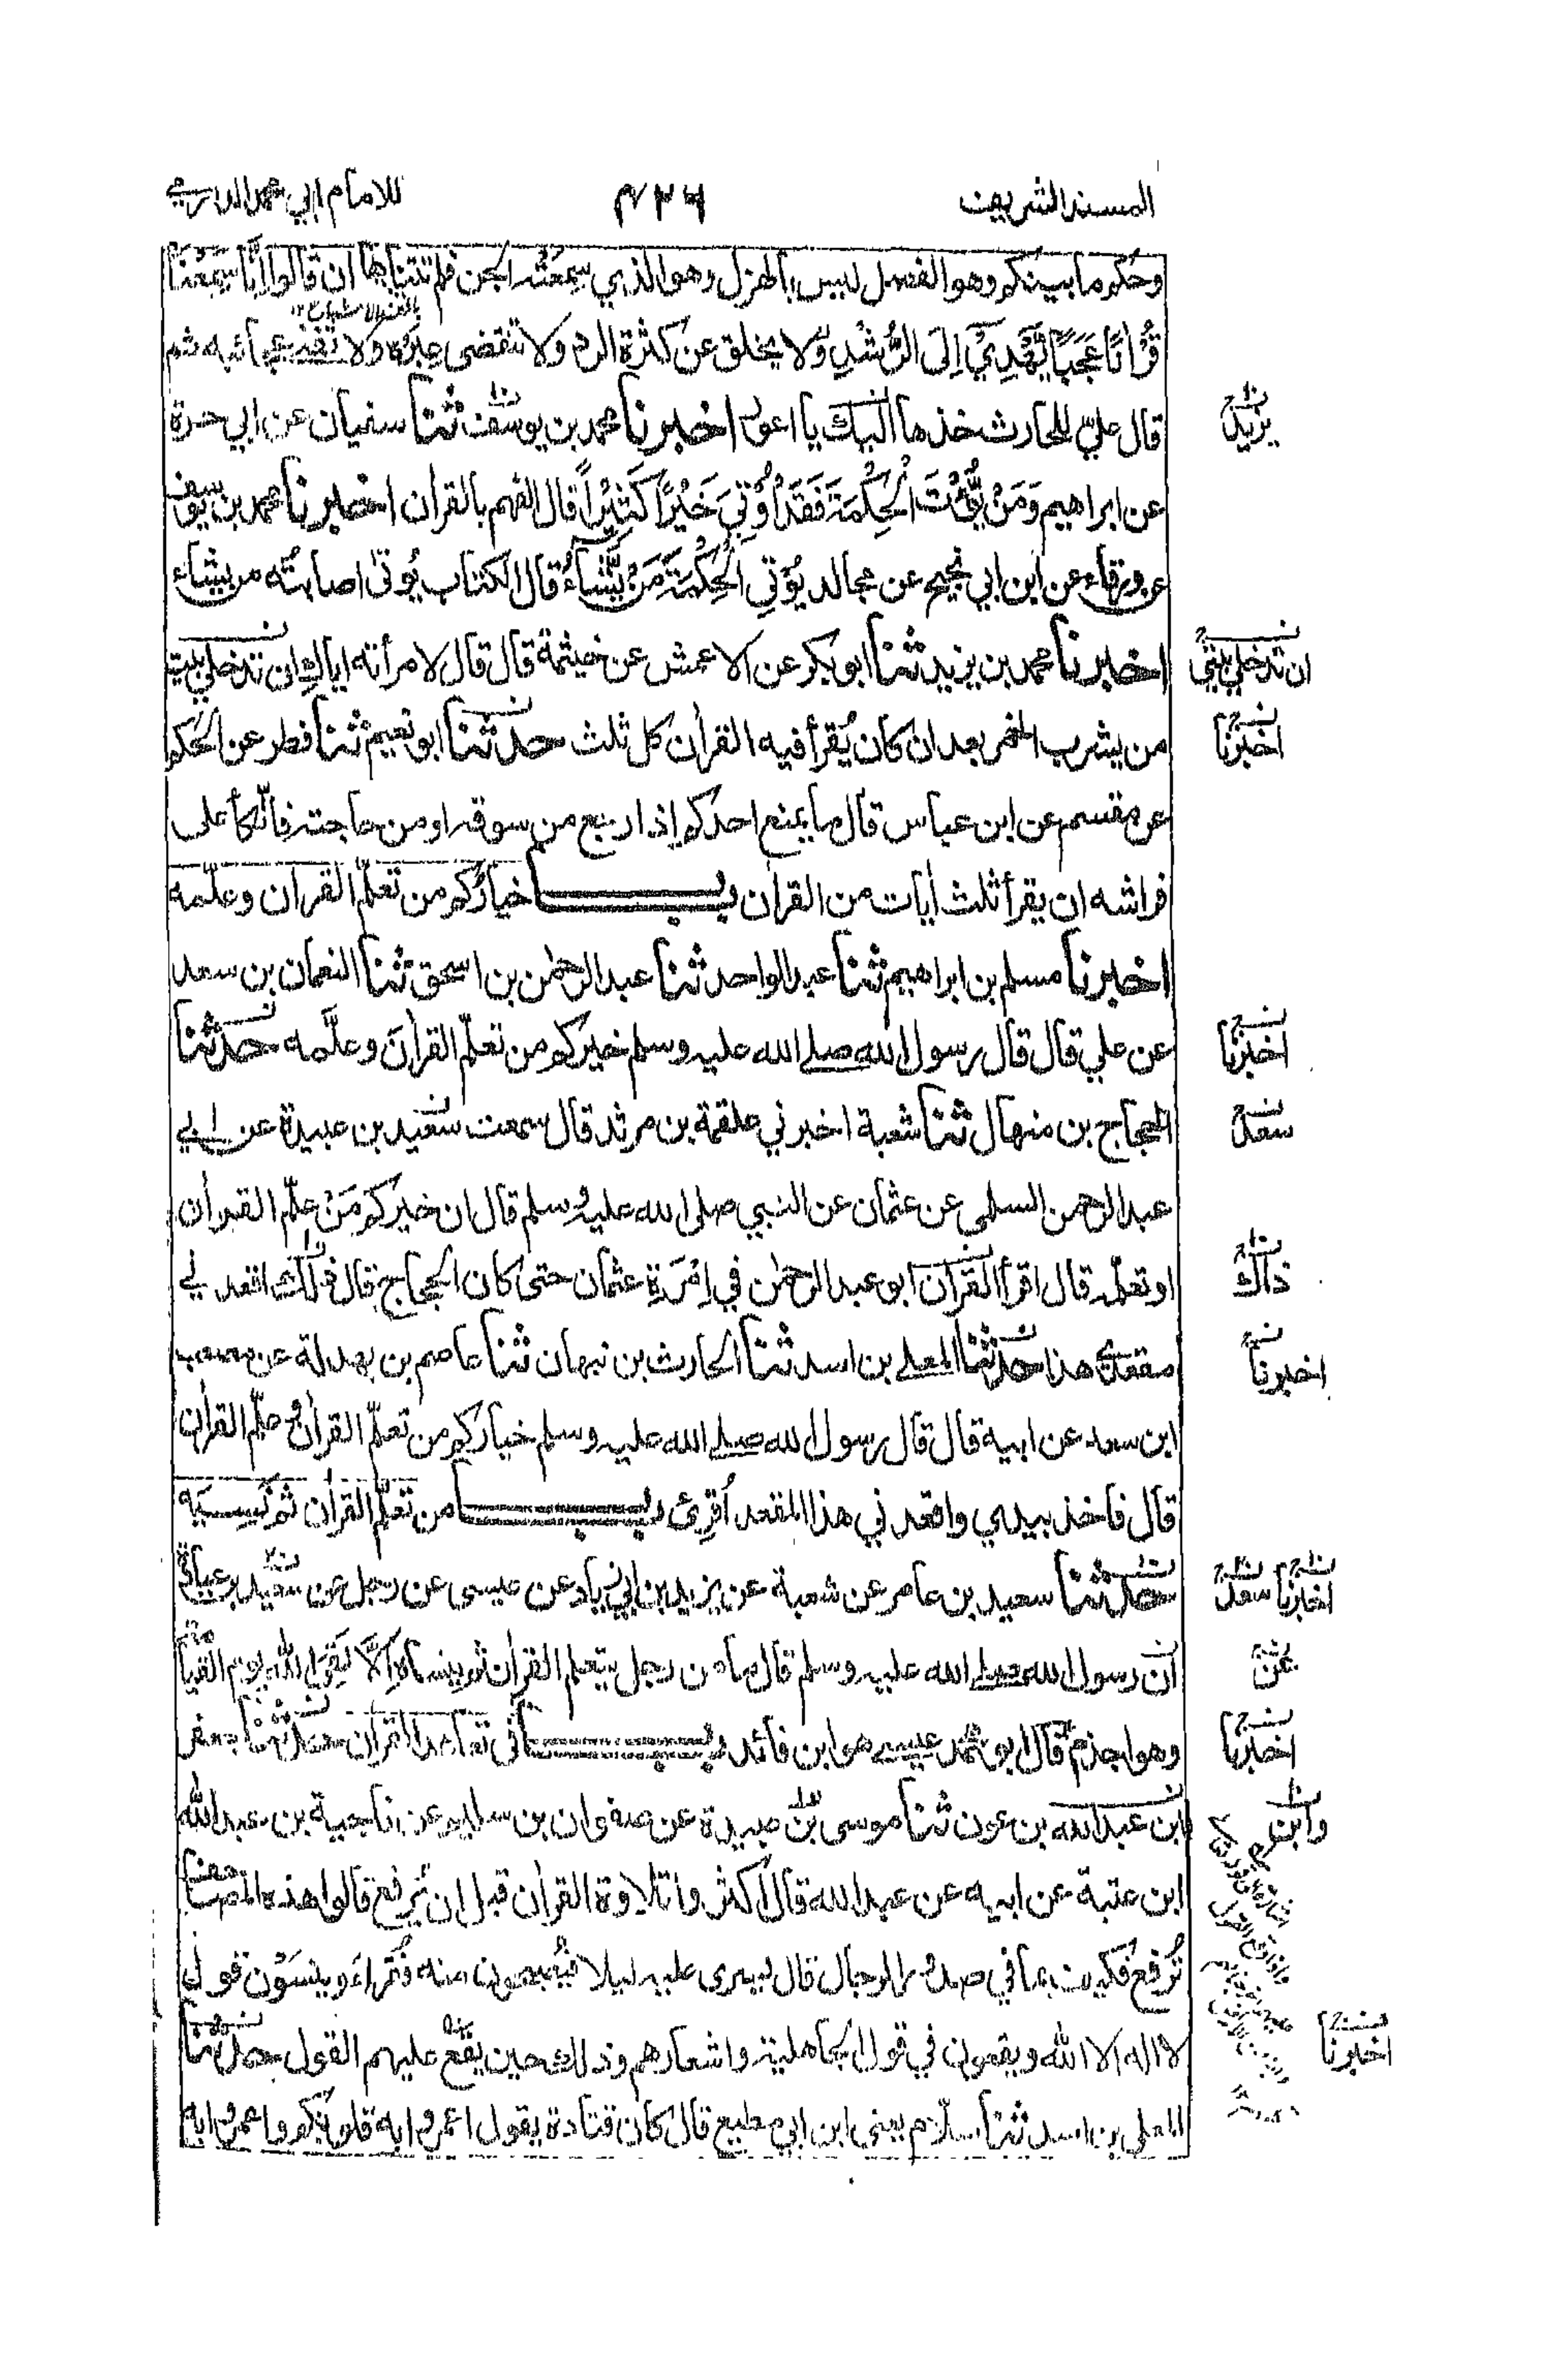 المسند الشريف
٤٣٦
للامام ابي محمد الدارمي
وحكم ما بينكم وهو الفصل ليس بالهزل وهو الذي سَمِعَتْه الجن فلم تتناها ان قالوا اِنَّا سَمِعْنَا
قُرْاٰنًا عَجَبًا يَّهْدِيْٓ اِلَى الرُّشْدِ وَلا يخلق عن كثرة الرد ولا تنقضي عِبَرُه ولا تفنى عجائبه ثم
قال عليّ للحارث خذها اليك يا اعور اخبرنا محمد بن يوسف ثنا سفيان عن ابي حمزة
يزيد
عن ابراهيم وَمَنْ يُّؤْتَ الْحِكْمَةَ فَقَدْ اُوْتِيَ خَيْرًا كَثِيْرًا قال الفهم بالقران اخبرنا محمد بن يوسف
عن ورقاء عن ابن ابي نجيح عن مجاهد يُؤْتِي الْحِكْمَةَ مَنْ يَّشَآءُ قال الكتاب يُوتى اصابتُه من يشاء
اخبرنا محمد بن يزيد ثنا ابو بكر عن الاعمش عن خيثمة قال قال لامرأته اياكِ ان تدخلي بيت
ان تدخلي بيتي
من يشرب الخمر بعد ان كان يُقرأ فيه القراٰن كل ثلث حدثنا ابو نعيم ثنا فطر عن الحكم
اخبرنا
عن مقسم عن ابن عباس قال ما يمنع احدكم اِذا رجع من سوقه او من حاجته فاتّكأ على
فراشه ان يقرأ ثلث اٰيات من القراٰن باب خيارُكم من تعلّم القراٰن وعلّمه
اخبرنا مسلم بن ابراهيم ثنا عبد الواحد ثنا عبد الرحمٰن بن اسحٰق ثنا النعمان بن سعد
عن علي قال قال رسول الله صلى الله عليه وسلم خيركم من تعلّم القراٰنَ وعلَّمه حدثنا
اخبرنا
الحجاج بن منهال ثنا شعبة اخبرني علقمة بن مرثد قال سمعت سعيد بن عبيدة عن ابي
سعد
عبد الرحمن السلمي عن عثمان عن النبي صلى الله عليه وسلم قال ان خيركم مَنْ علّم القراٰن
او تعلّمه قال اقرأ القراٰن ابو عبد الرحمٰن في اِمْرَةِ عثمان حتى كان الحجاج قال ذلك اقعدني
ذاك
مقعدي هذا حدثنا المعلى بن اسد ثنا الحارث بن نبهان ثنا عاصم بن بهدلة عن مصعب
اخبرنا
ابن سعد عن ابيه قال قال رسول الله صلى الله عليه وسلم خياركم من تعلّم القراٰن وعلّم القراٰن
قال فاخذ بيدي واقعدني هذا المقعد اُقرِئ باب من تعلّم القراٰن ثم نَسِيَه
حدثنا سعيد بن عامر عن شعبة عن يزيد بن ابي زياد عن عيسى عن رجل عن سعيد بن عبادة
اخبرنا سعد
ان رسول الله صلى الله عليه وسلم قال ما من رجل يتعلم القراٰن ثم ينساه اِلّا لَقِيَ الله يوم القيٰمة
عن
وهو اجذم قال ابو محمد عيسى هو ابن فائد باب في تعاهد القراٰن حدثنا جعفر
اخبرنا
ابن عبد الله بن عون ثنا موسى بن عبيدة عن صفوان بن سليم عن ناجية بن عبد الله
وابن
ابن عتبة عن ابيه عن عبد الله قال اكثروا تلاوة القراٰن قبل ان يُرفع قالوا هذه المصاحف
تُرفع فكيف بما في صدور الرجال قال يسرى عليه ليلا فيُصبحون منه فُقَراءَ وينسَوْن قول
لا اله الا الله ويقعون في قول الجاهلية واشعارهم وذلك حين يقع عليهم القول حدثنا
اخبرنا
المعلى بن اسد ثنا سلّام يعني ابن ابي مطيع قال كان قتادة يقول اعمروا به قلوبكم واعمروا به